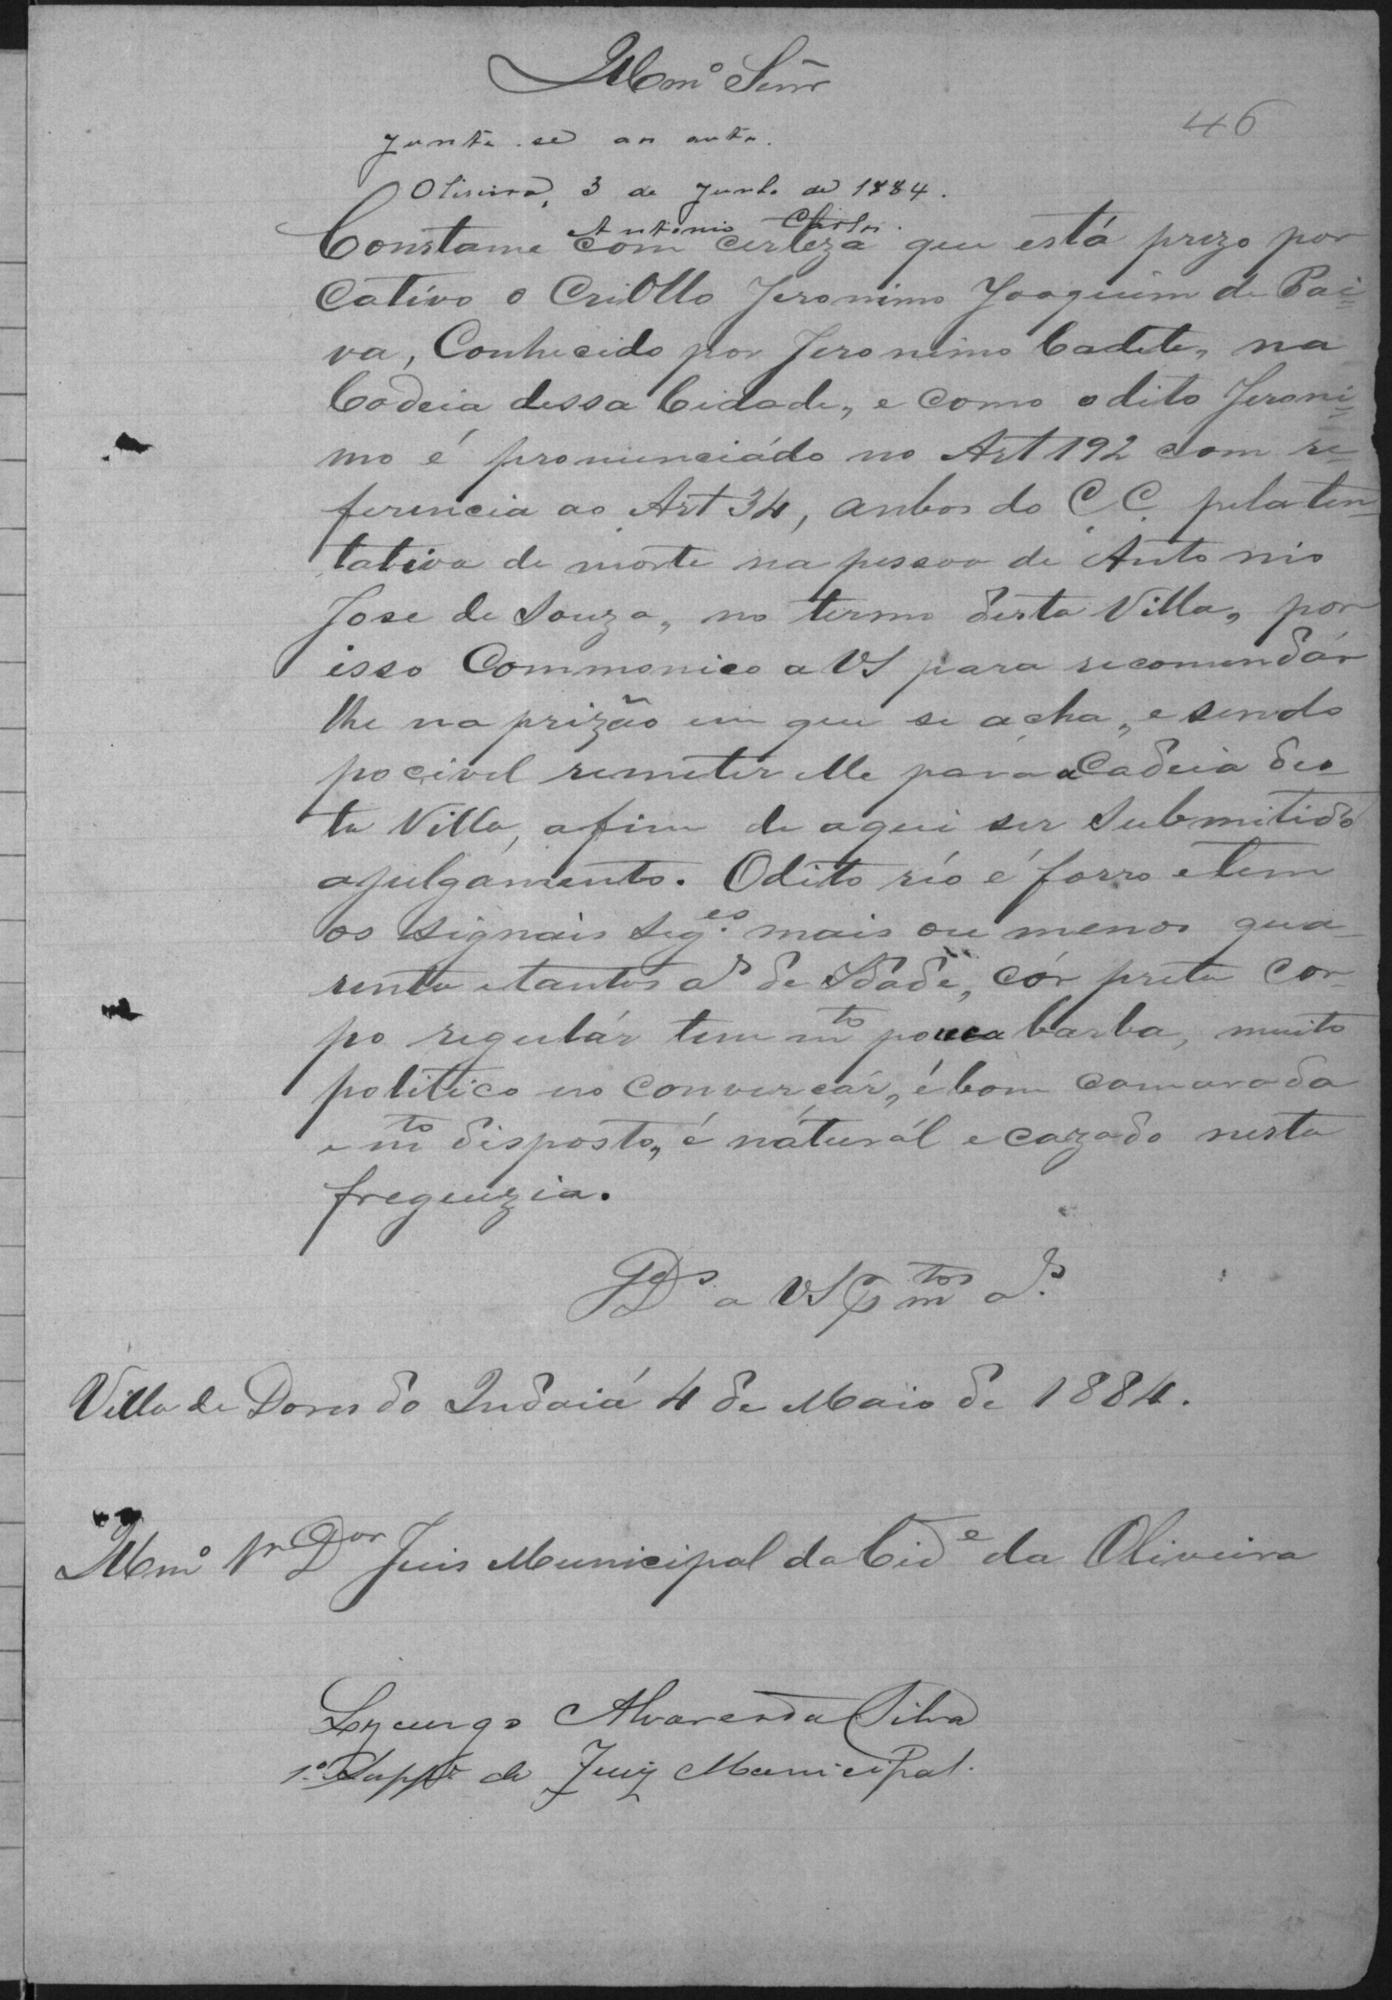 Illmº Senr
46
Junte-se ao auto.
Oliveira, 3 de Junho de 1884.
Antonio Carlos.
Constame com certeza que está prezo por
Cativo o Criollo Jeronimo Joaquim de Pai=
va, Conhecido por Jeronimo Cadete, na
Codeia dessa Cidade, e como o dito Jeroni=
mo é pronunciádo no Art 192 com re=
ferencia ao Art 34, anbos do C. C. pela ten=
tativa de morte na pessoa de Antonio
Jose de Souza, no termo desta Villa, por
isso Commonico a VS para recomendár
lhe na prizão em que se acha, e sendo
pocivel remeter elle para a Cadeia des
ta Villa, afim de aqui ser Submitido
a julgamento. O dito réo é forro e tem
os signais seg.es mais ou menos qua-
renta e tantos a.s de Idade, côr preta cor-
po regulár tem mto pouca barba, muito
politico no convercár, é bom camarada
e mto disposto, é naturál e cazado nesta
freguezia.
Ds. a VS mtos a.s
Villa de Dores do Indaiá 4 de Maio de 1884.
Illmº Snr Dor Juis Municipal da Cide da Oliveira
Lycurgo Alvarenda Silva
1.º Supple de Juiz Municipal.